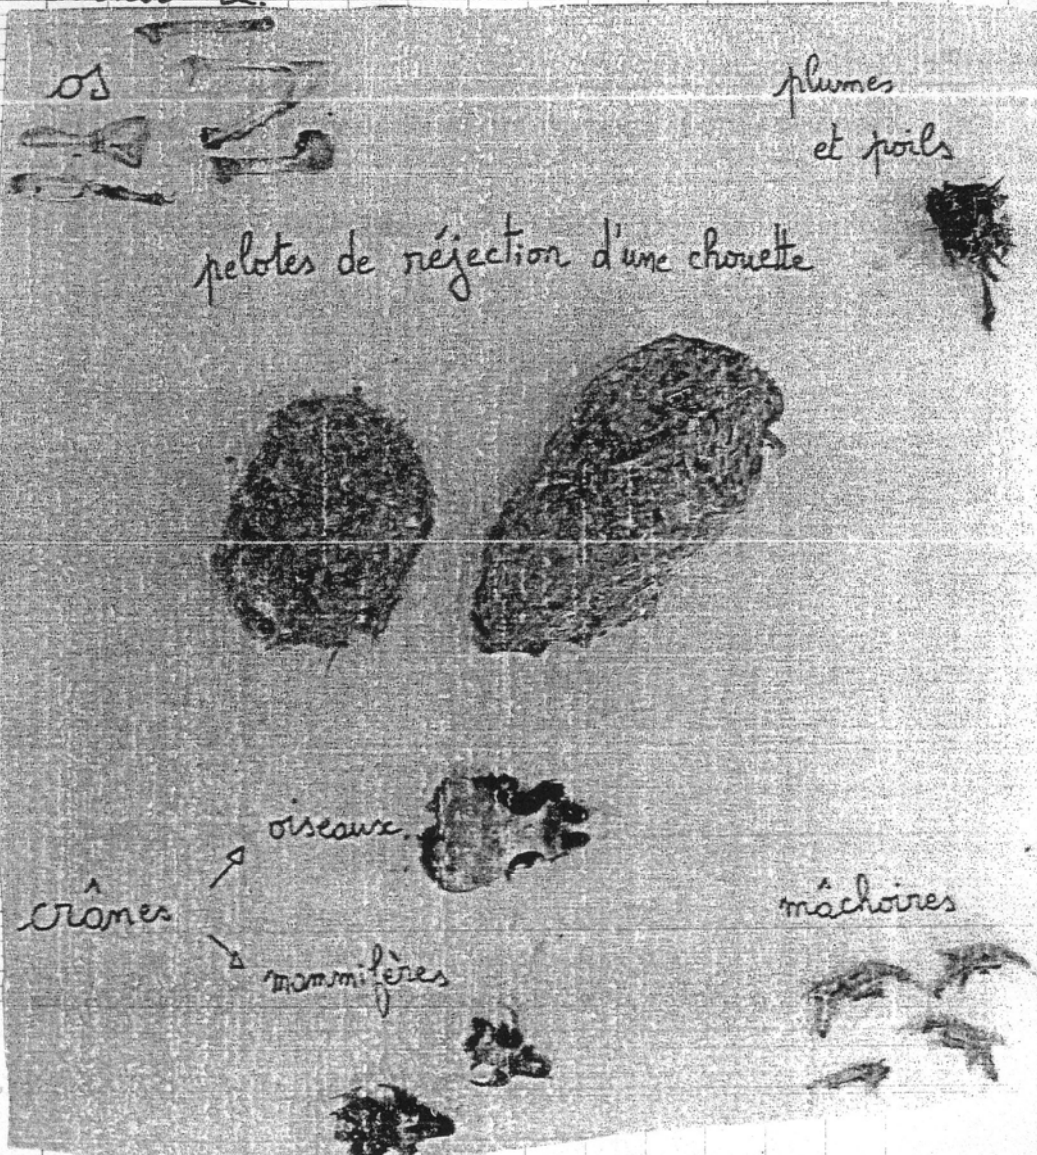 os
plumes
et poils
pelotes de réjection d'une chouette
oiseaux
crânes
mammifères
mâchoires